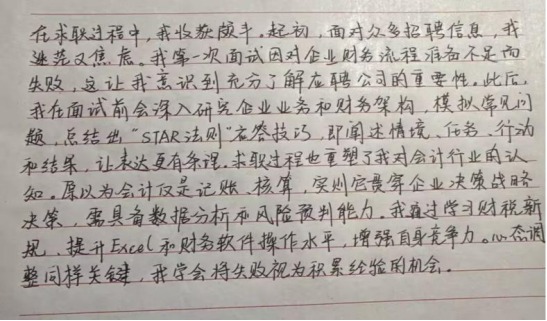 在求职过程中，我收获颇丰。起初，面对众多招聘信息，我
迷茫又焦虑。我第一次面试因对企业财务流程准备不足而
失败，这让我意识到充分了解应聘公司的重要性。此后，
我在面试前会深入研究企业业务和财务架构，模拟常见问
题，总结出“STAR法则”答技巧，即阐述情境、任务、行动
和结果，让表达更有条理。求职过程也重塑了我对会计行业的认
知。原以为会计仅是记账、核算，实则它贯穿企业决策战略
决策，需具备数据分析和风险预判能力。我通过学习财税新
规、提升Excel和财务软件操作水平，增强自身竞争力。心态调
整同样关键，我学会将失败视为积累经验的机会。